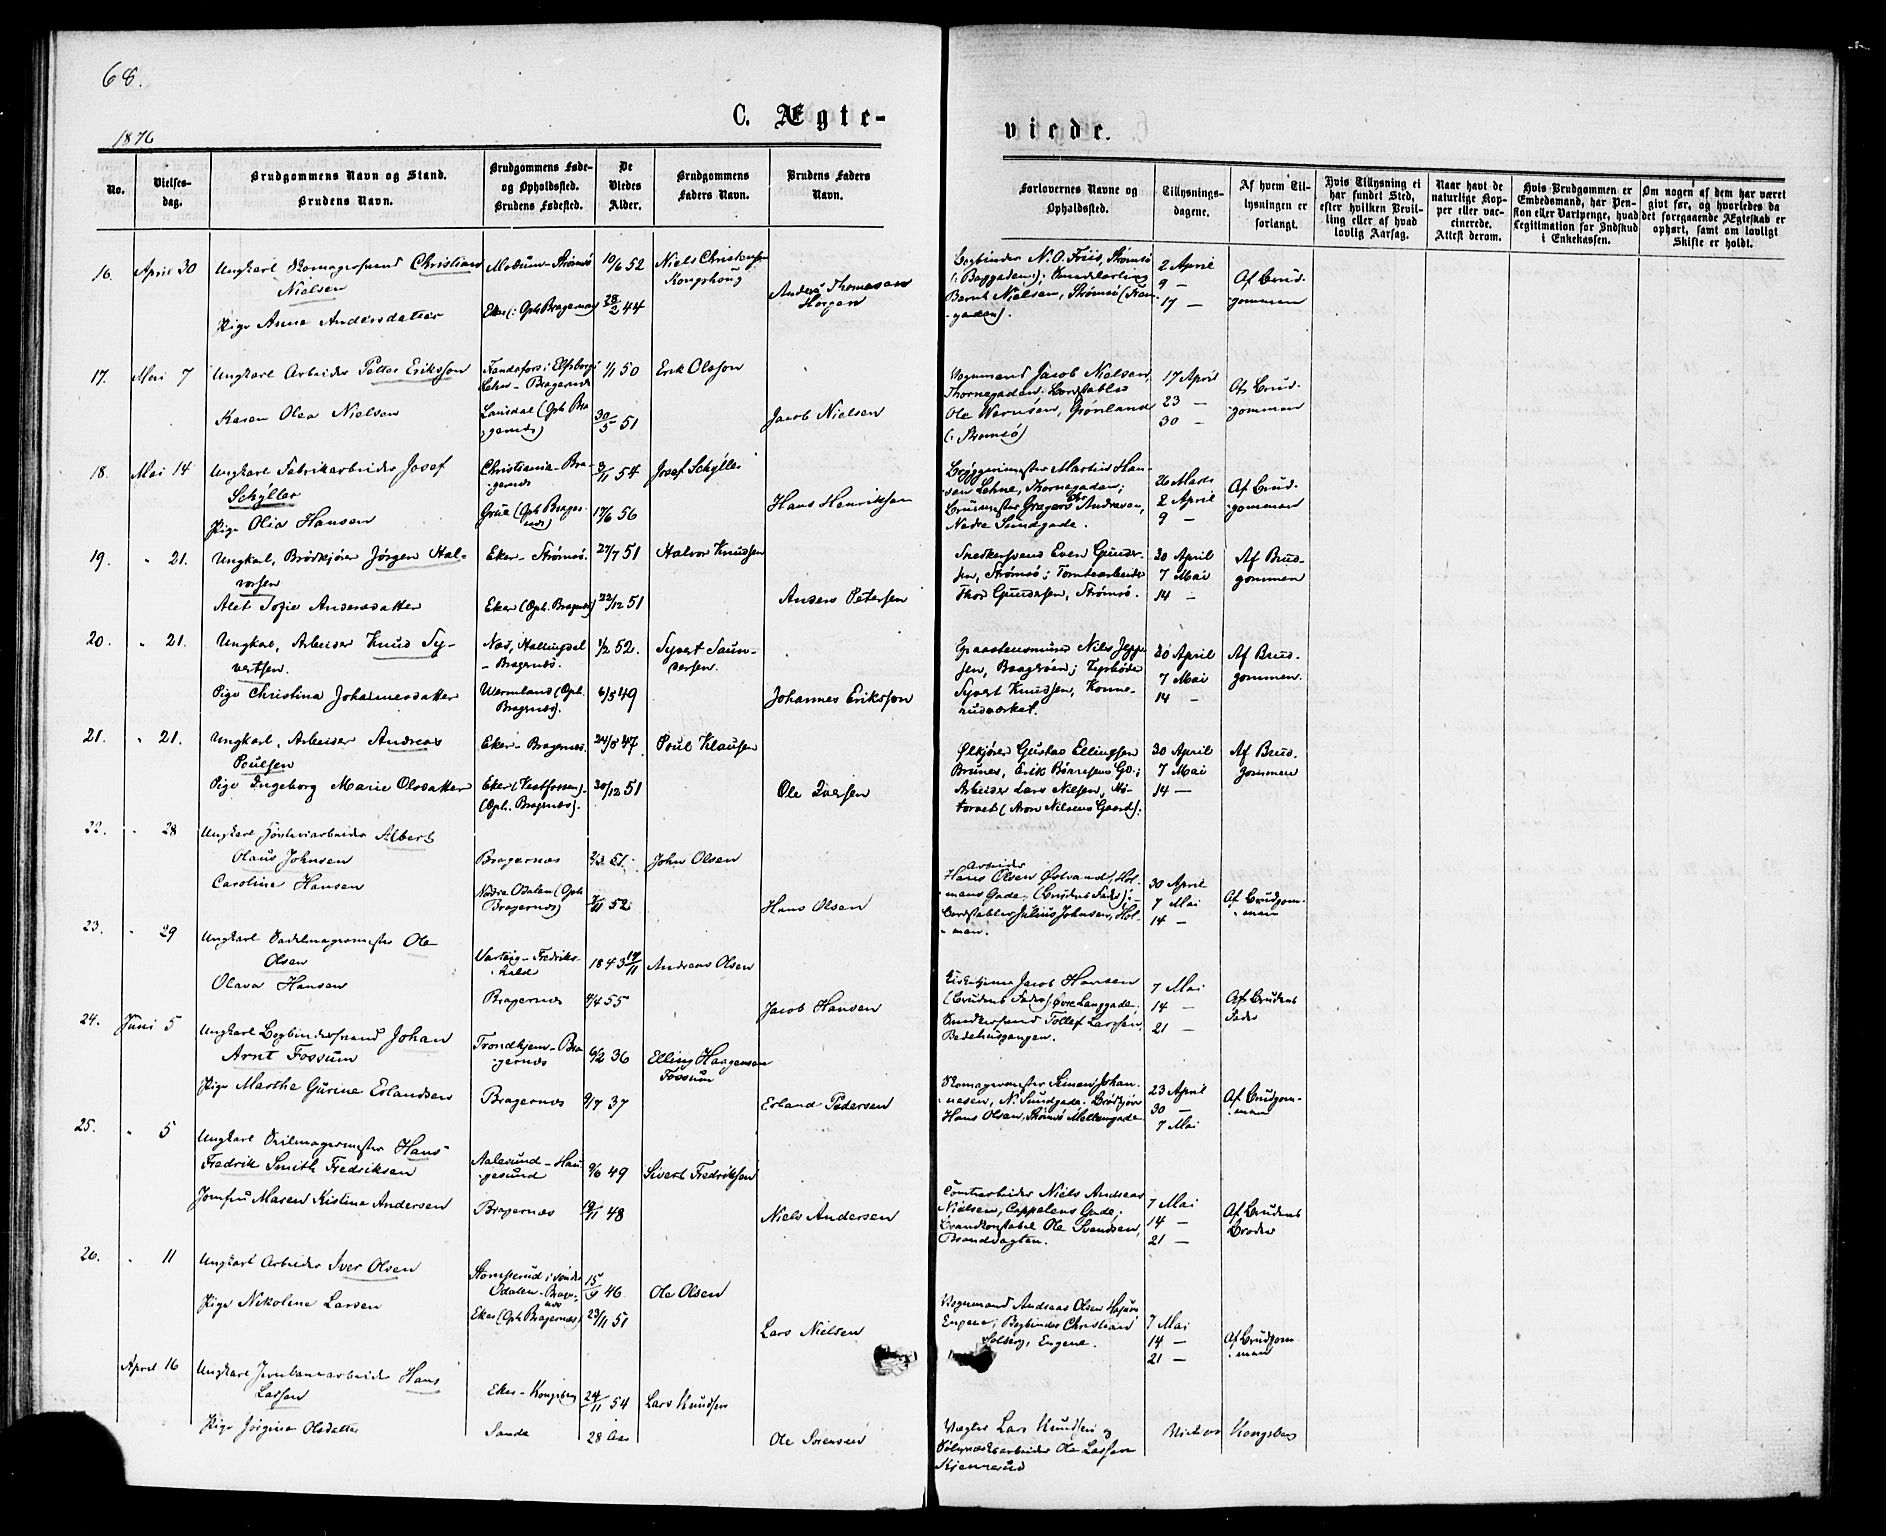 68.
C. Ægte-
viede.
1876
No.
Vielses-
dag.
Brudgommens Navn og Stand.
Brudens Navn.
Brudgommens Føde-
og Opholdssted.
Brudens Fødested.
De
Viedes
Alder.
Brudgommens
Faders Navn.
Brudens Faders
Navn.
Forlovernes Navne og
Opholdssted.
Tillysnings-
dagene.
Af hvem Til-
lysningen er
forlangt.
Hvis Tillysning ei
har fundet Sted,
efter hvilken Bevil-
ling eller af hvad
lovlig Aarsag.
Naar havt de
naturlige Kop-
per eller vac-
cinerede.
Attest derom.
Hvis Brudgommen er
Embedsmand, har Pen-
sion eller Vartpenge, hvad
Legitimation for Indskud
i Enkekassen.
Om nogen af dem har været
givt før, og hvorledes da
det foregaaende Ægteskab er
ophørt, samt om lovligt
Skifte er holdt.
16. April 30
Ungkarl Skomagersvend Christian
Nielsen
Pige Anne Andersdatter
Modum - Strømsø
Eker (: Oph. Bragernæs)
10/6 52
28/2 44
Niels Christensen
Kongshoug
Anders Thomassen
Horgen
Bogbinder N. O. Friis, Strømsø
(: Baggaden:); Snedkerlærling
Bernt Nielsen, Strømsø
2 April
9 —
17 —
Af Brud-
gommen
17. Mai 7
Ungkarl Arbeider Petter Eriksson
Karen Olea Nielsen
Lehn - Bragernæs
Lansdal (Oph. Bra-
gernæs)
1/1 50
30/5 51
Erik Olsson
Jacob Nielsen
Vognmand Jacob Nielsen,
Thornegaden; Bordstabler
Ole Wernsen, Grønland
(: Strømsø)
17 April
23 —
30 —
Af Brud-
gommen
18. Mai 14
Ungkarl Fabrikarbeider Josef
Schÿller
Pige Olia Hansen
Christiania - Bra-
gernæs
Grue (Oph. Brager-
næs)
3/11 54
17/6 56
Josef Schÿller
Hans Henriksen
Bryggerimester Martin Han-
sen Lehne, Thornegaden;
Gregers Andresen,
Nedre Sundgade.
26 Marts
2 April
9 —
Af Brud-
gommen
19. " 21.
Ungkal, Brødkjører Jørgen Hal-
vorsen
Alet Sofie Andersdatter
Eker - Strømsø.
Eker (Oph. Bragernæs)
27/7 51
22/12 51
Halvor Knudsen
Anders Petersen
Snedkersvend Even Gunder-
sen, Strømsø; Tomtearbeider
Thor Gundersen, Strømsø.
30 April
7 Mai
14 —
Af Brud-
gommen
20. " 21.
Ungkal, Arbeider Knud Sy-
vertsen.
Pige Christina Johannesdatter
Næs, Hallingdal
- Bragernæs.
Wermland (Oph.
Bragernæs).
1/2 52.
6/5 49
Syvert
Johannes Eriksson
Graastensminer Nils Jeppe-
sen, Bragerøen; Fyrbøder
Syvert Knudsen, Konne-
rudværket.
30 April
7 Mai
14 —
Af Brud-
gommen.
21. " 21.
Ungkarl, Arbeider Andreas
Poulsen
Pige Ingeborg Marie Olsdatter
Eker - Bragernæs.
Eker (Vestfossen) -
(Oph. Bragernæs).
24/5 47
30/12 51
Poul Klausen
Ole Iversen
Ølkjører Gustav Ellingsen
Brunæs, Erik Børresens G.;
Arbeider Lars Nilsen, Hø-
torvet (Aron Nilsens Gaard).
30 April
7 Mai
14 —
Af Brud-
gommen
22. " 28
Ungkarl Albert
Olaus Johnsen
Caroline Hansen
Bragernæs
Nordre Odalen (Oph
Bragernæs)
51
52
John Olsen
Hans Olsen
Arbeider
Hans Olsen Østrand, Hol-
mens Gade, (Brudens Fader);
Bordstabler Julius Johnsen, Hol-
men.
30 April
7 Mai
14 —
Af Brudgom-
men
23. " 29
Ungkarl Sadelmagermester Ole
Olsen
Olava Hansen
Varteig - Fredriks-
hald
Bragernæs
1843 17/11
4/4 55
Andreas Olsen
Jacob Hansen
Jacob Hansen
(Brudens Fader) Øvre Langgade.
Snedkersvend Tollef Larssen,
Bedehusgangen.
7 Mai
14 —
21 —
Af Brudens
Fader
24. Juni 5
Ungkarl Bogbindersvend Johan
Arnt Fossum
Pige Marthe Gurine Erlandsen
Trondhjem - Bra-
gernæs
Bragernæs
6/2 36
9/7 37
Elling Haagensen
Fossum
Erland Pedersen
Skomagermester Simen Johan-
nesen, N. Sundgade. Brødkjører
Hans Olsen, Strømsø Mellemgade
23 April
30 —
7 Mai
Af Brudgom-
men
25. " 5
Ungkarl Seilmagermester Hans
Fredrik Smith Fredriksen
Jomfru Maren Kistine Andersen
Aalesund - Hau-
gesund
Bragernæs
9/6 49
19/11 48
Sivert Fredriksen
Niels Andersen
Tomtearbeider Niels Andreas
Nielsen, Cappelens Gade;
Brandkonstabel Ole Svendsen,
Brandvagten.
7 Mai
14 —
21 —
Af Brudens
Broder
26. " 11
Ungkarl Arbeider Iver Olsen
Pige Nikoline Larsen
Stomperud i søndre
Odalen - Brager-
næs
Eker (Oph. Bragernæs)
46
23/11 51
Ole Olsen
Lars Nielsen
Vognmand Andreas Olsen
Engene; Bogbinder Christian
Solberg, Engene.
7 Mai
14 —
21 —
Af Brudgom-
men
April 16
Ungkarl Jernbanearbeider Hans
Larsen
Pige Jørgine Olsdatter
Eker - Kongsberg
Sande
24/11 54
28 Aar
Lars Knudsen
Ole Sørensen
Vægter Lars Knudsen og
Sølvværksarbeider Ole Larssen
Kjennerud
Viet paa Kongsberg